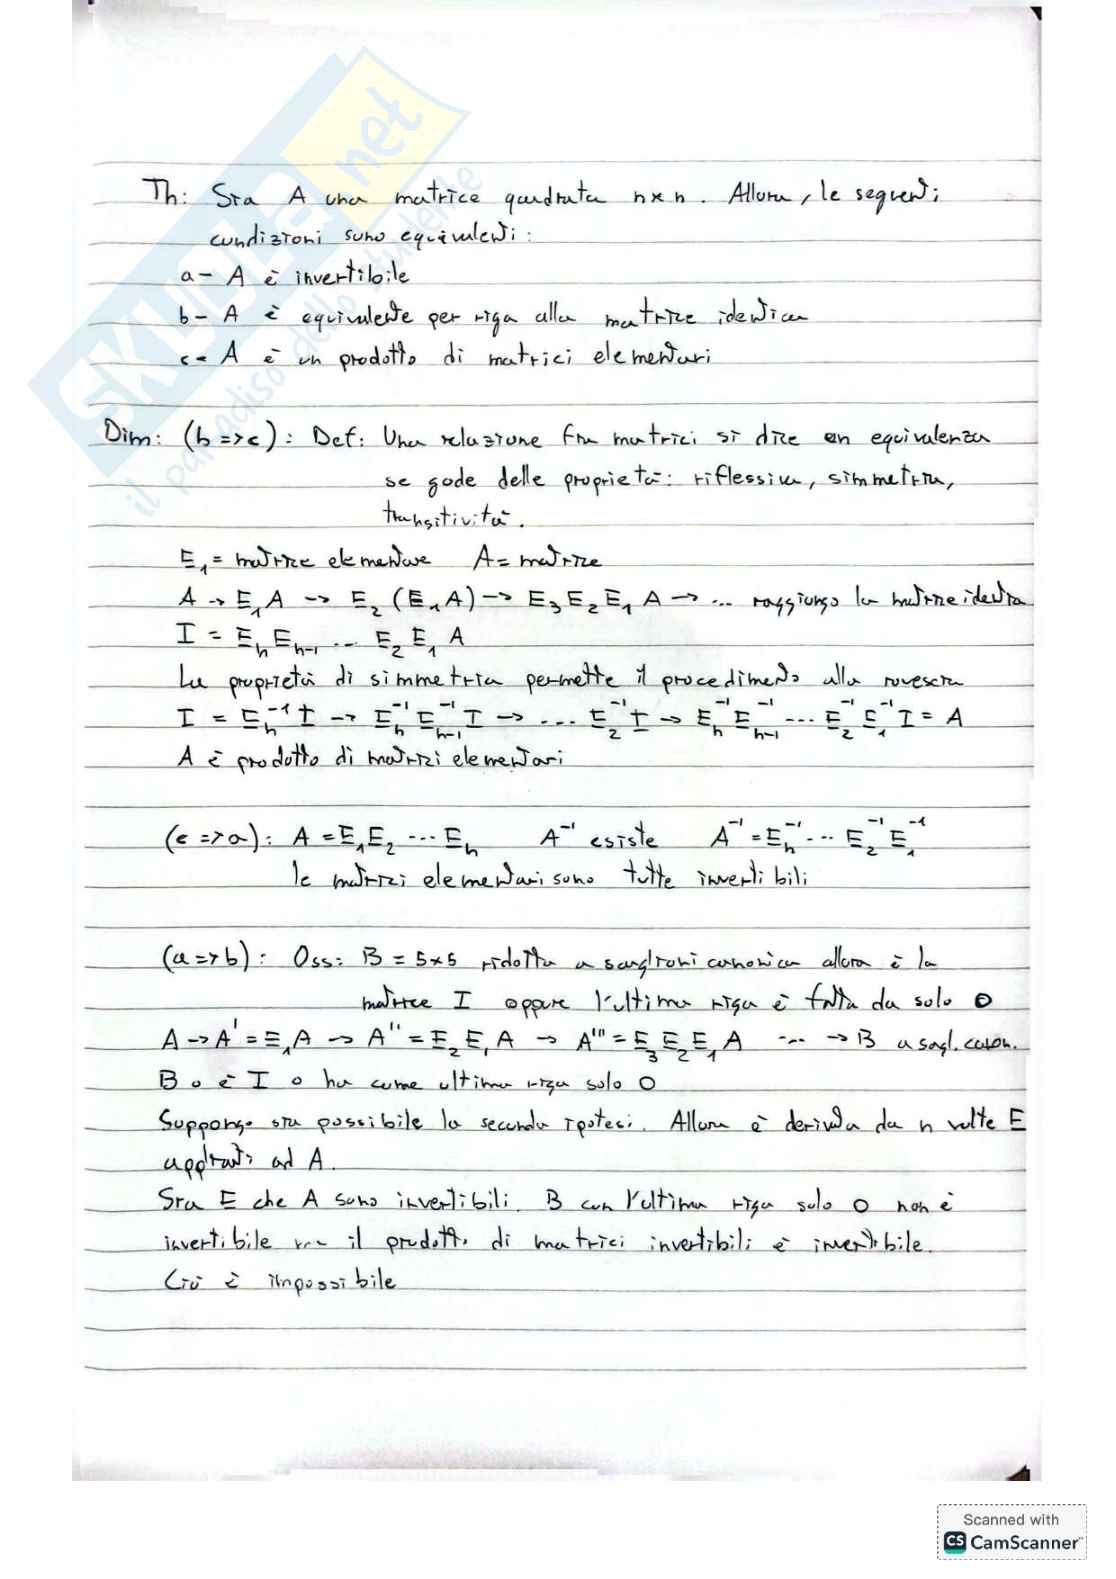 SKUOLA.net
il paradiso dello studente
Th: Sia A una matrice quadrata n×n. Allora, le seguenti
condizioni sono equivalenti:
a- A è invertibile
b- A è equivalente per riga alla matrice identica
c- A è un prodotto di matrici elementari
Dim: (b=>c): Def: Una relazione fra matrici si dice en equivalenza
se gode delle proprietà: riflessiva, simmetria,
transitività.
E₁= matrice elementare A= matrice
A → E₁A → E₂(E₁A) → E₃E₂E₁A → ... raggiungo la matrice identica
I = EₕEₕ₋₁ ... E₂E₁A
La proprietà di simmetria permette il procedimento alla rovescia
I = Eₕ⁻¹I → Eₕ⁻¹Eₕ₋₁⁻¹I → ... E₂⁻¹I → Eₕ⁻¹Eₕ₋₁⁻¹ ... E₂⁻¹E₁⁻¹I = A
A è prodotto di matrici elementari
(c=>a): A = E₁E₂ ... Eₕ A⁻¹ esiste A⁻¹ = Eₕ⁻¹ ... E₂⁻¹E₁⁻¹
le matrici elementari sono tutte invertibili
(a=>b): Oss: B = 5×5 ridotta a scaglioni canonica allora è la
matrice I oppure l'ultima riga è fatta da solo 0
A → A' = E₁A → A'' = E₂E₁A → A''' = E₃E₂E₁A ... → B a scagl. canon.
B o è I o ha come ultima riga solo 0
Suppongo sia possibile la seconda ipotesi. Allora è derivata da n volte E
applicati ad A.
Sia E che A sono invertibili. B con l'ultima riga solo 0 non è
invertibile ma il prodotto di matrici invertibili è invertibile.
Ciò è impossibile
Scanned with
CS CamScanner